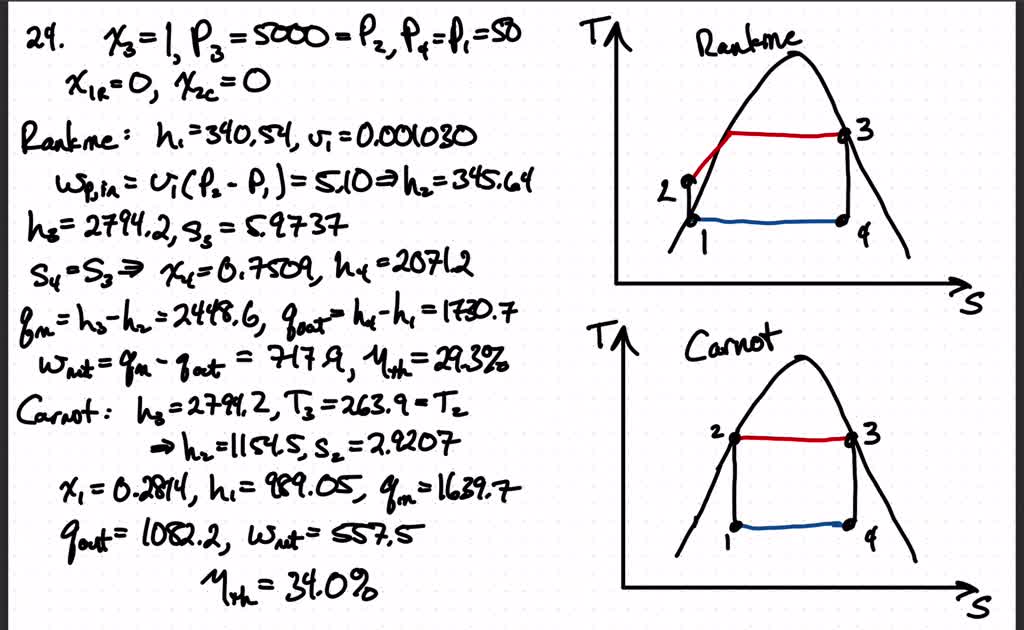 24. x₃=1, P₃=5000=P₂, P₄=P₁=50
x₁R=0, x₂C=0
Rankine: h₁=340.54, v₁=0.001030
wp,in=v₁(P₂-P₁)=5.10⇒h₂=345.64
h₃=2794.2, s₃=5.9737
s₄=s₃⇒x₄=0.7509, h₄=2071.2
qin=h₃-h₂=2448.6, qout=h₄-h₁=1730.7
wnet=qin-qout=717.9, ηth=29.3%
Carnot: h₃=2794.2, T₃=263.9=T₂
⇒h₂=1154.5, s₂=2.9207
x₁=0.2814, h₁=989.05, qin=1639.7
qout=1082.2, wnet=557.5
ηth=34.0%
T
Rankine
3
2
1
4
S
T
Carnot
2
3
1
4
S